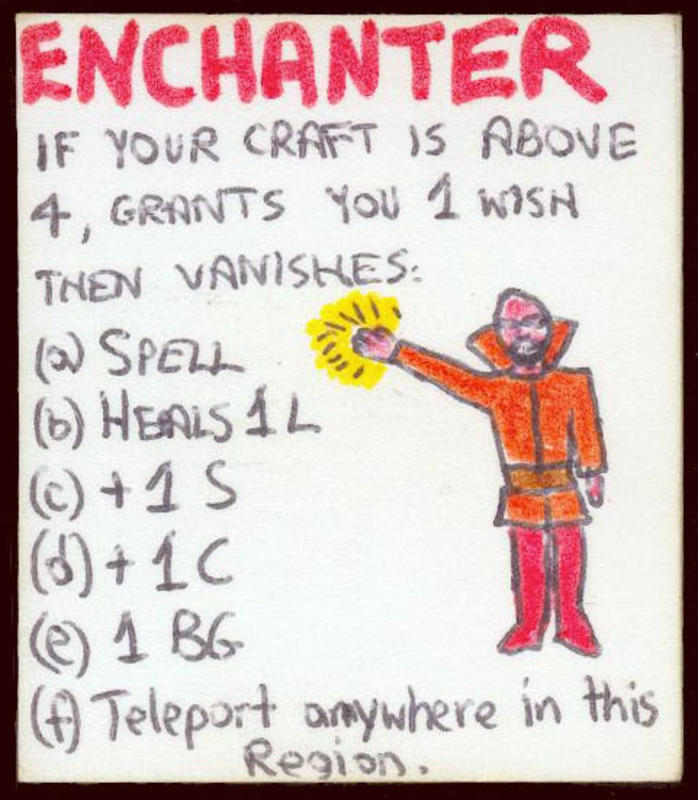 ENCHANTER
IF YOUR CRAFT IS ABOVE
4, GRANTS YOU 1 WISH
THEN VANISHES:
(a) SPELL
(b) HEALS 1 L
(c) +1 S
(d) +1 C
(e) 1 BG
(f) Teleport anywhere in this
Region.